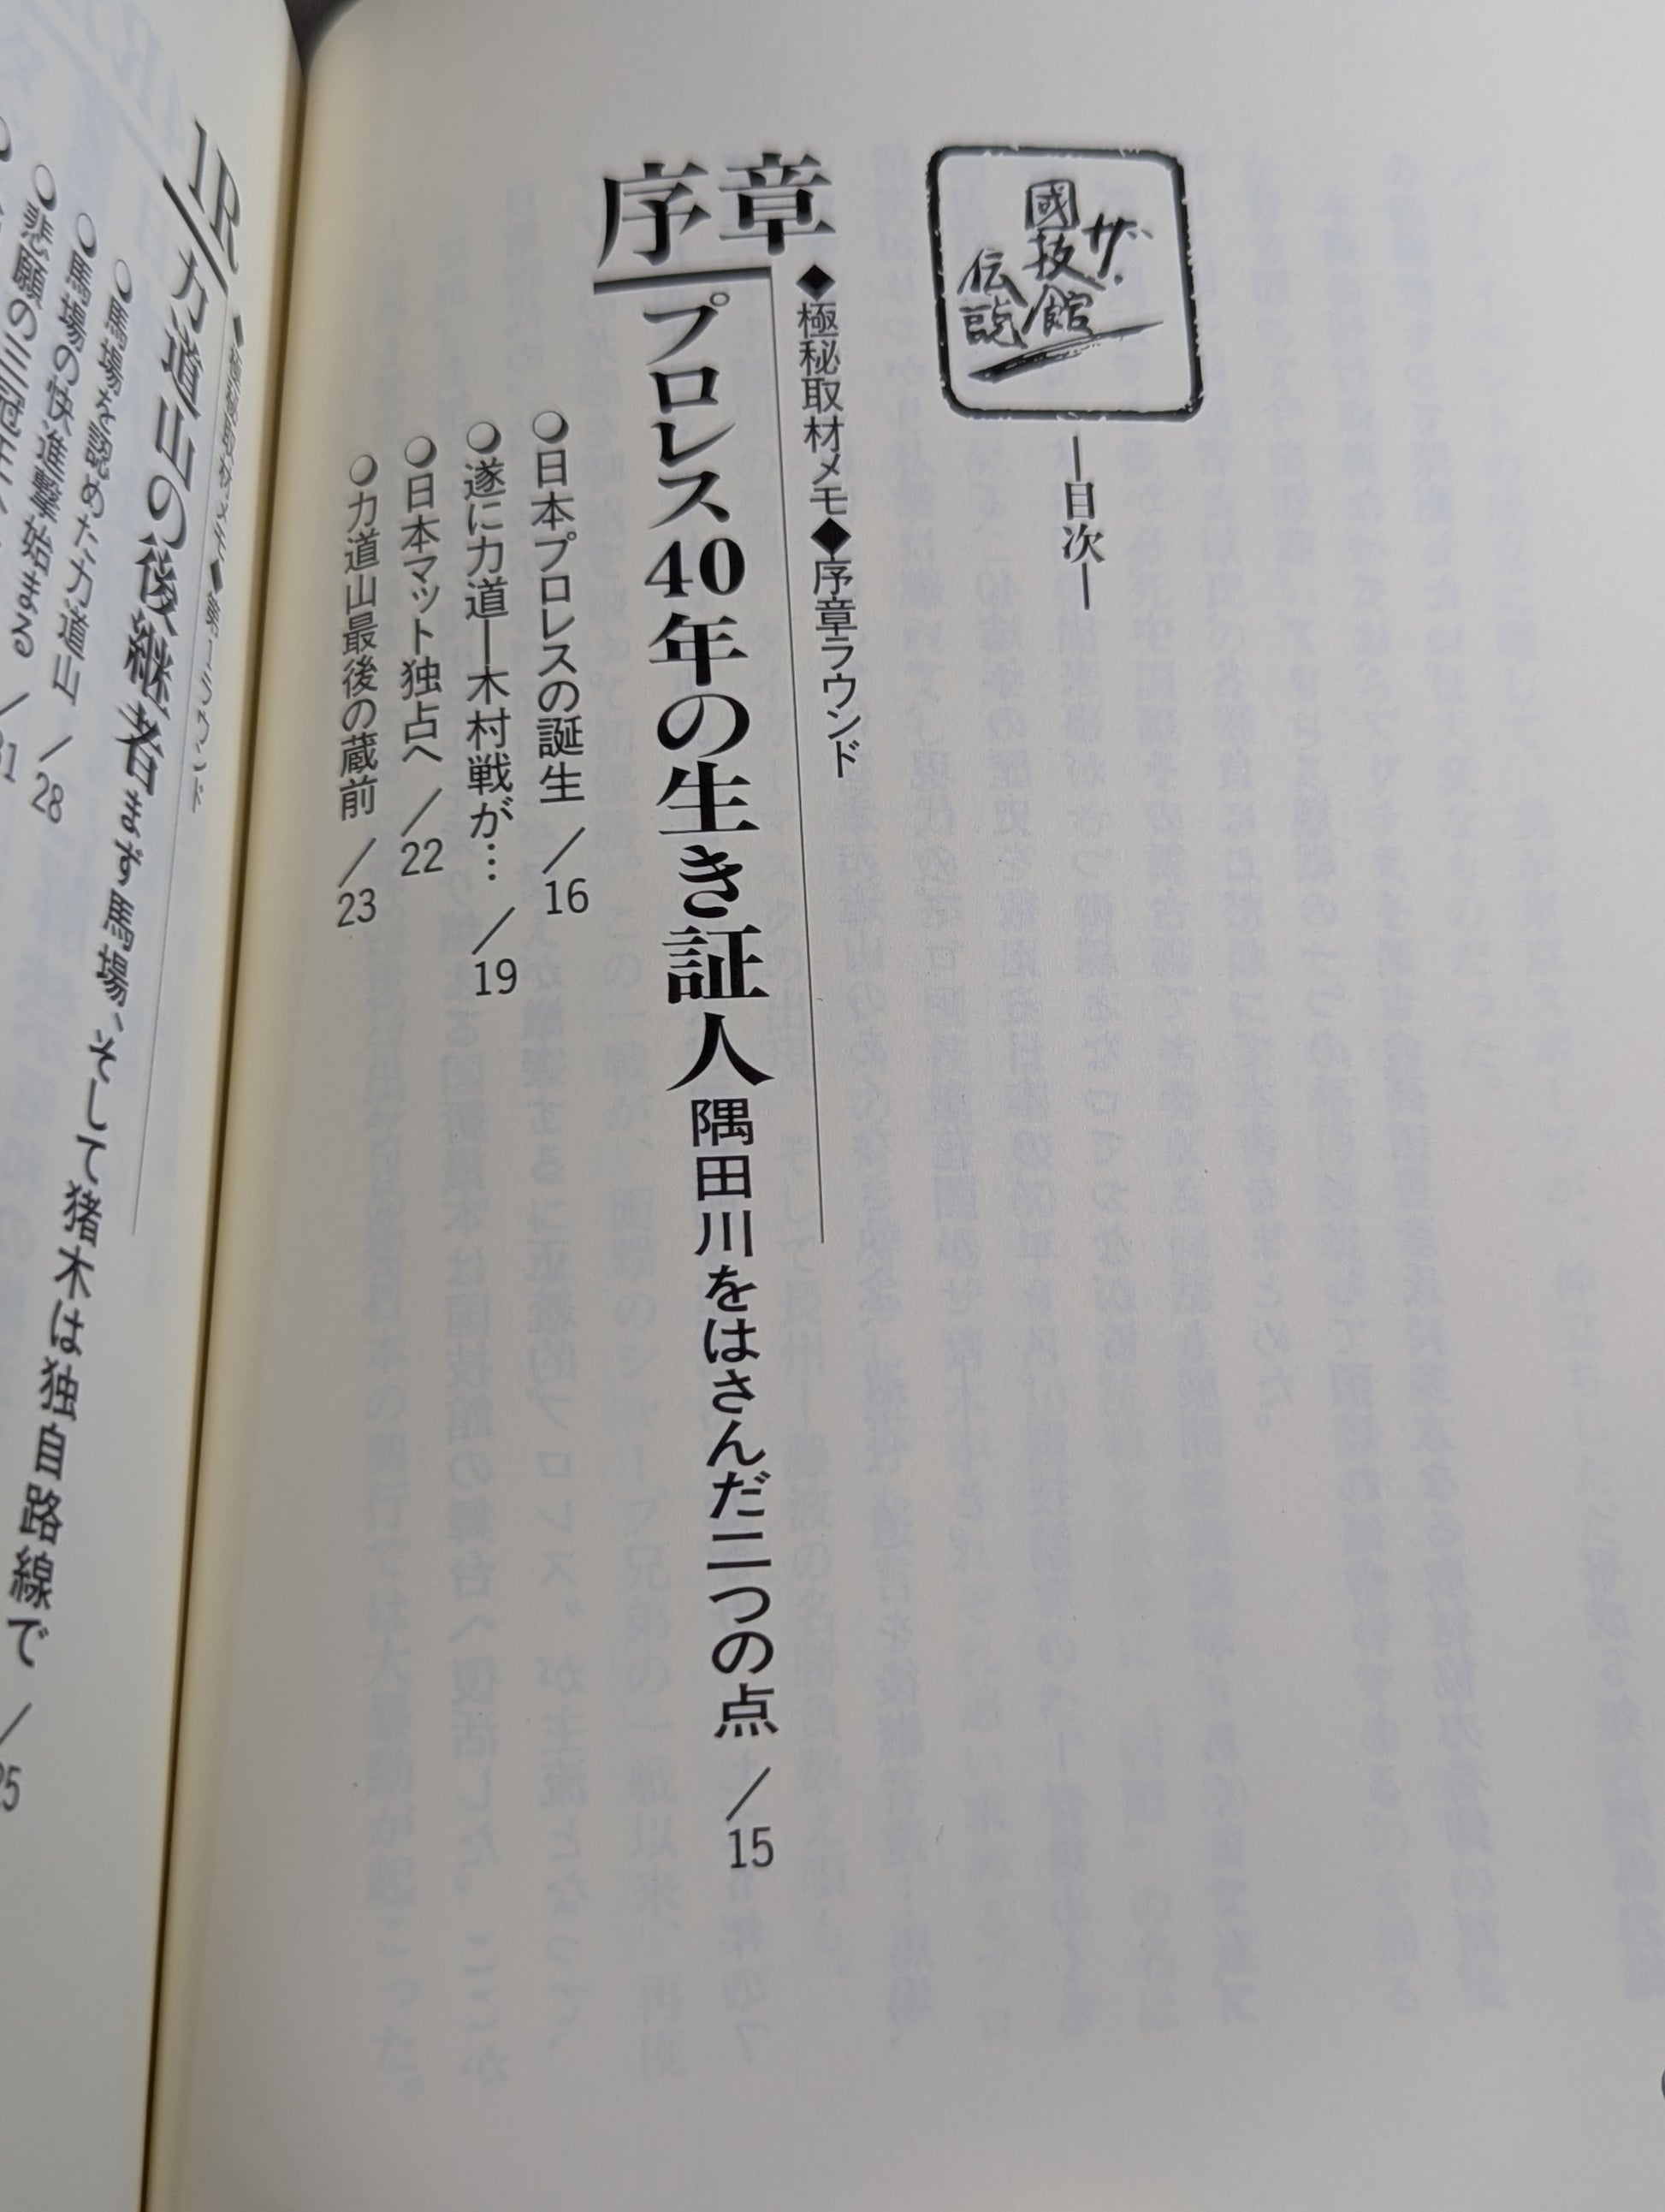 ザ・
國技館
伝説
―目次―
◆極秘取材メモ◆序章ラウンド
序章
プロレス40年の生き証人 隅田川をはさんだ二つの点 ／15
○日本プロレスの誕生 ／16
○遂に力道―木村戦が… ／19
○日本マット独占へ ／22
○力道山最後の蔵前 ／23
◆極秘取材メモ◆第1ラウンド
1R
力道山の後継者 まず馬場、そして猪木は独自路線で ／25
○馬場を認めた力道山 ／28
○馬場の快進撃始まる ／31
○悲願の三冠王へ